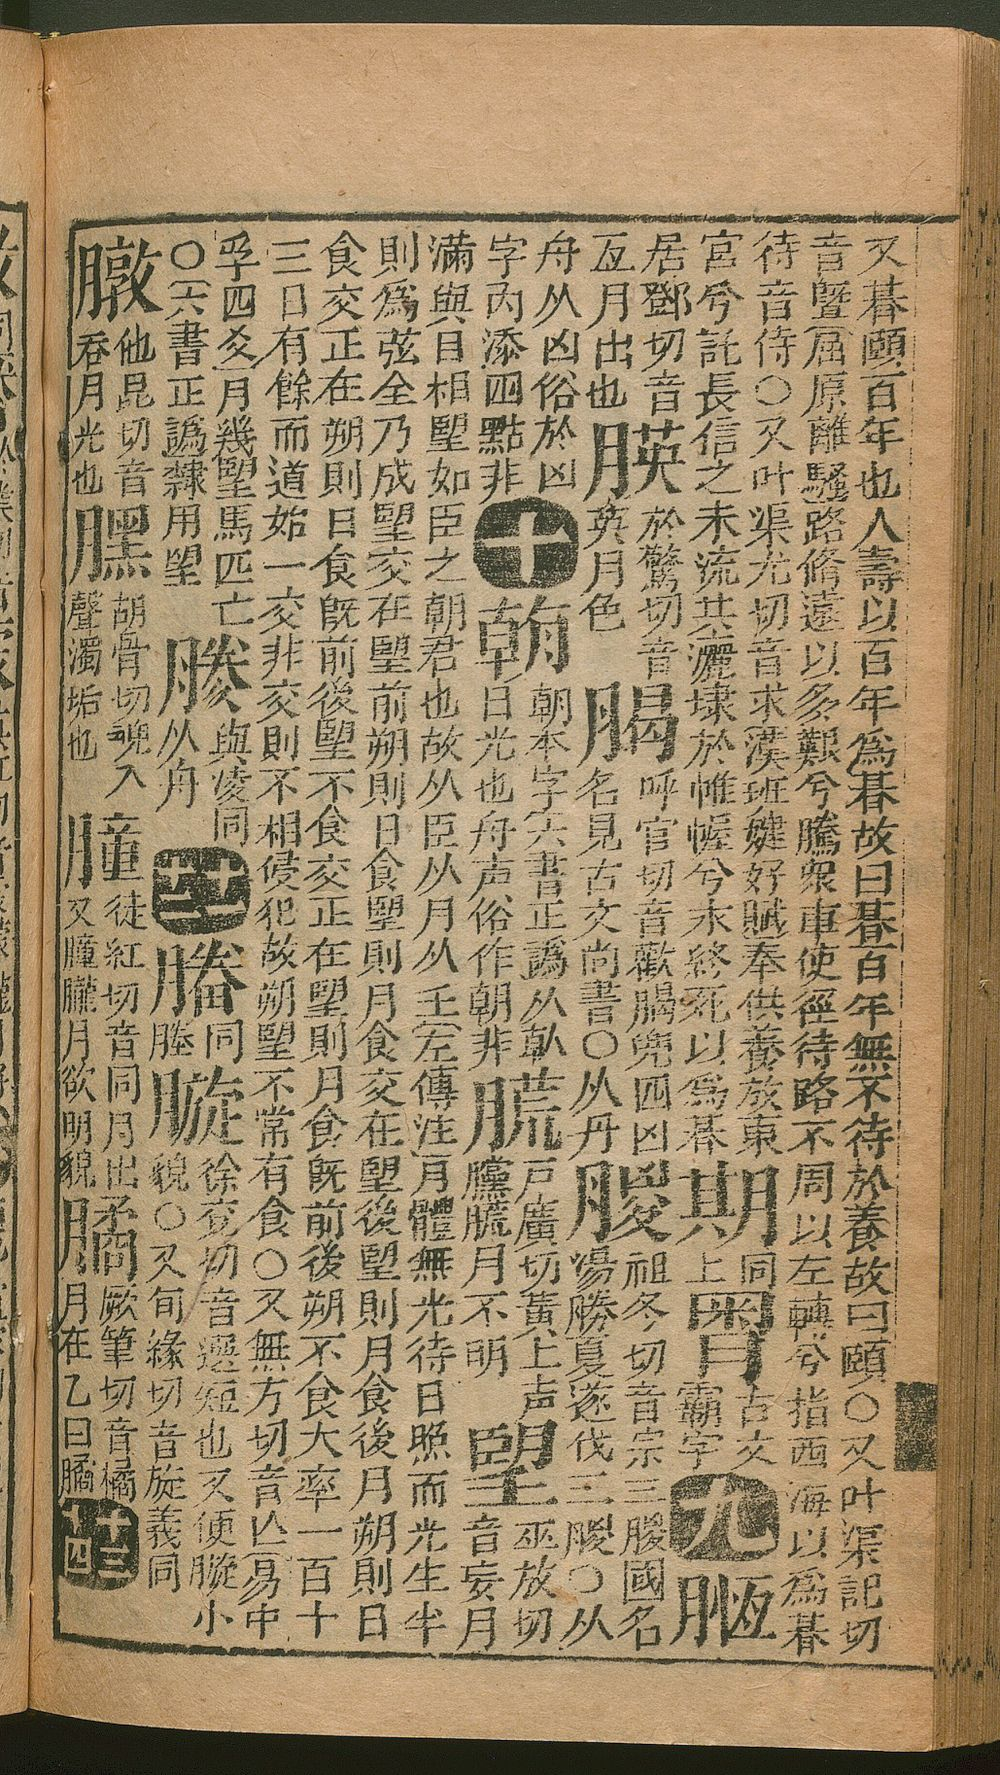 又朞頤百年也人壽以百年爲朞故曰朞百年無不待於養故曰頤○又叶渠記切
音曁屈原離騷路脩遠以多艱兮騰衆車使徑待路不周以左轉兮指西海以爲朞
待音侍○又叶渠尤切音求漢班婕妤賦奉供養放東
宮兮託長信之末流共灑埽於帷幄兮永終死以爲朞
期同上
古文霸字
九
𣍸居鄧切音亙月出也
朠於驚切音英月色
呼官切音歡䐗兜四凶名見古文尚書○从丹
朡祖冬切音宗三朡國名湯勝夏遂伐三朡○从舟从凶俗於凶字內添四點非
十
朝本字六書正譌从倝日光也舟声俗作朝非
朚戶廣切黃上声朦朚月不明
朢巫放切音妄月滿與日相朢如臣之朝君也故从臣从月从壬左傳注月體無光待日照而光生半
則爲弦全乃成朢交在朢前朔則日食朢則月食交在朢後朢則月食後月朔則日
食交正在朔則日食旣前後朢不食交正在朢則月食旣前後朔不食大率一百十
三日有餘而道始一交非交則不相侵犯故朔朢不常有食○又無方切音亡易中
孚四爻月幾朢馬匹亡○六書正譌隸用望
與凌同从舟
十二
同塍
徐兗切音選短也又便䁢小貌○又旬緣切音旋義同
暾他昆切音吞月光也
胡骨切魂入聲濁垢也
朣徒紅切音同月出又朣朧月欲明貌
厥筆切音橘月在乙曰
十三
十四